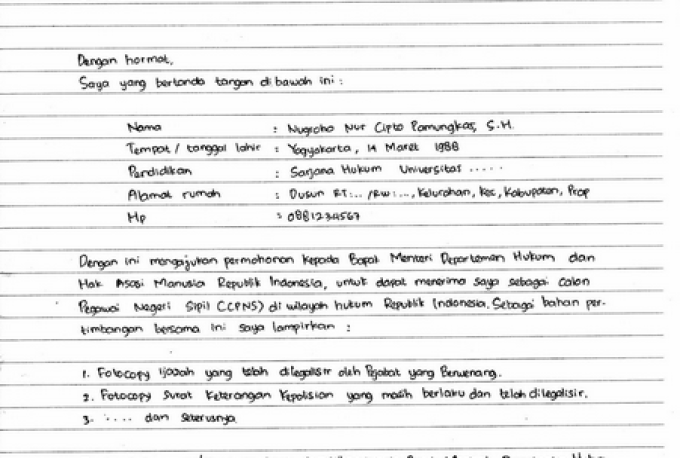 Dengan hormat,
Saya yang bertanda tangan di bawah ini :
Nama : Nugroho Nur Cipto Pamungkas, S.H.
Tempat / tanggal lahir : Yogyakarta, 14 Maret 1988
Pendidikan : Sarjana Hukum Universitas .....
Alamat rumah : Dusun RT:... /RW:..., Kelurahan, Kec, Kabupaten, Prop
Hp : 0881234567
Dengan ini mengajukan permohonan kepada Bapak Menteri Departemen Hukum dan
Hak Asasi Manusia Republik Indonesia, untuk dapat menerima saya sebagai Calon
Pegawai Negeri Sipil (CPNS) di wilayah hukum Republik Indonesia. Sebagai bahan per-
timbangan bersama ini saya lampirkan :
1. Fotocopy Ijasah yang telah dilegalisir oleh Pejabat yang Berwenang.
2. Fotocopy Surat Keterangan Kepolisian yang masih berlaku dan telah dilegalisir.
3. ..... dan seterusnya